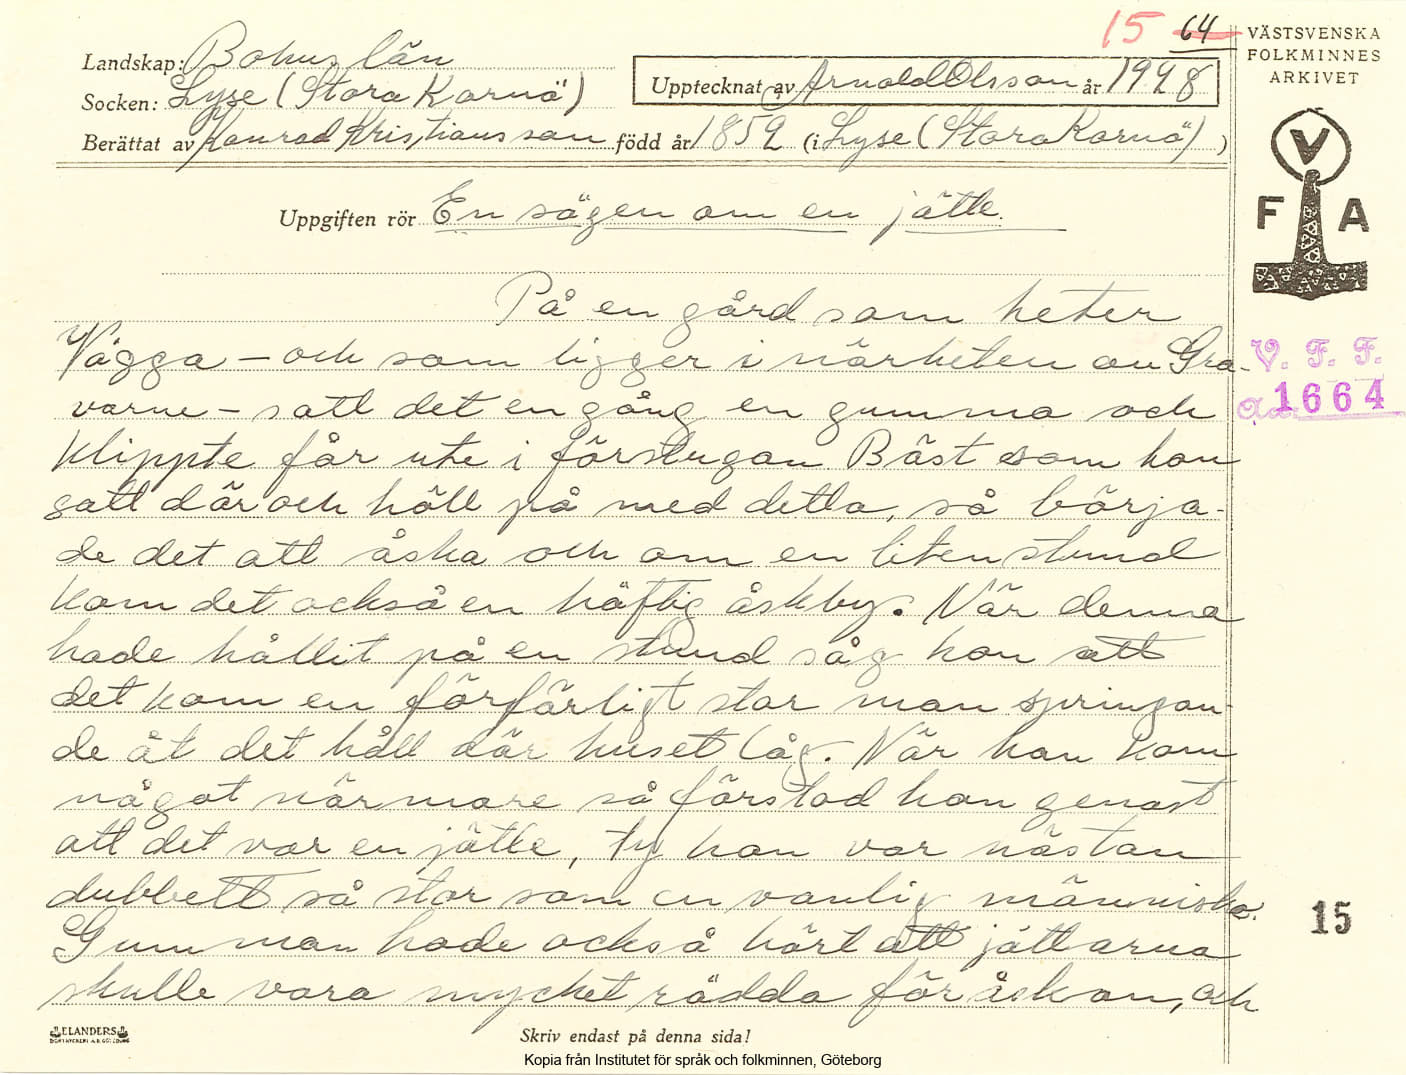 15 64
VÄSTSVENSKA
FOLKMINNES
ARKIVET
Landskap: Bohuslän
Socken: Lyse (Stora Kornö)
Upptecknat av Arnold Olsson år 1928
Berättat av Konrad Kristiansson född år 1852 (i Lyse (Stora Kornö) )
V
F A
Uppgiften rör En sägen om en jätte.
På en gård som heter
Vägga – och som ligger i närheten av Gra-
varne – satt det en gång en gumma och
klippte får ute i förstugan. Bäst som hon
satt där och höll på med detta, så börja-
de det att åska och om en liten stund
kom det också en häftig åskby. När denna
hade hållit på en stund såg hon att
det kom en förfärligt stor man springan-
de åt det håll där huset låg. När han kom
något närmare så förstod hon genast
att det var en jätte, ty han var nästan
dubbelt så stor som en vanlig människa.
Gumman hade också hört att jättarna
skulle vara mycket rädda för åskan, och
V. F. F.
1664
15
ELANDERS
Skriv endast på denna sida!
Kopia från Institutet för språk och folkminnen, Göteborg